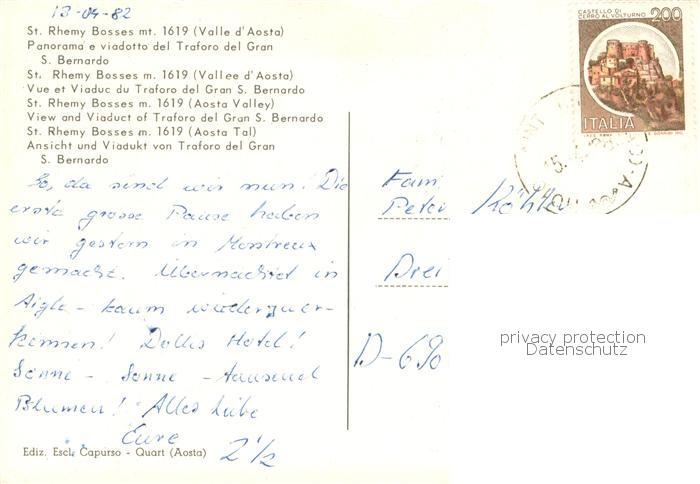 13-04-82
St. Rhemy Bosses mt. 1619 (Valle d'Aosta)
Panorama e viadotto del Traforo del Gran
S. Bernardo
St. Rhemy Bosses m. 1619 (Vallee d'Aosta)
Vue et Viaduc du Traforo del Gran S. Bernardo
St. Rhemy Bosses m. 1619 (Aosta Valley)
View and Viaduct of Traforo del Gran S. Bernardo
St. Rhemy Bosses m. 1619 (Aosta Tal)
Ansicht und Viadukt von Traforo del Gran
S. Bernardo
So, da sind wir nun! Die
erste grosse Pause haben
wir gestern in Montreux
gemacht. Übernachtet in
Aigle - kaum wiederzuer-
kennen! Dolles Hotel!
Sonne - Sonne - tausend
Blumen! Alles Liebe
Eure
2 1/2
Ediz. Escl. Capurso - Quart (Aosta)
CASTELLO DI
CERRO AL VOLTURNO
200
ITALIA
Fam
Peter
Drei
D-690
privacy protection
Datenschutz